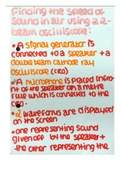 Finding the speed of
sound in air using a 2-
beam oscilloscope:
• A signal generator is
connected to a speaker + a
double beam cathode ray
oscilloscope (CRO)
• A microphone is placed infro
nt of the speaker on a metre
rule which is connected to the
• 2 waveforms are displayed
on the screen
• one representing sound
given off by the speaker +
the other representing the